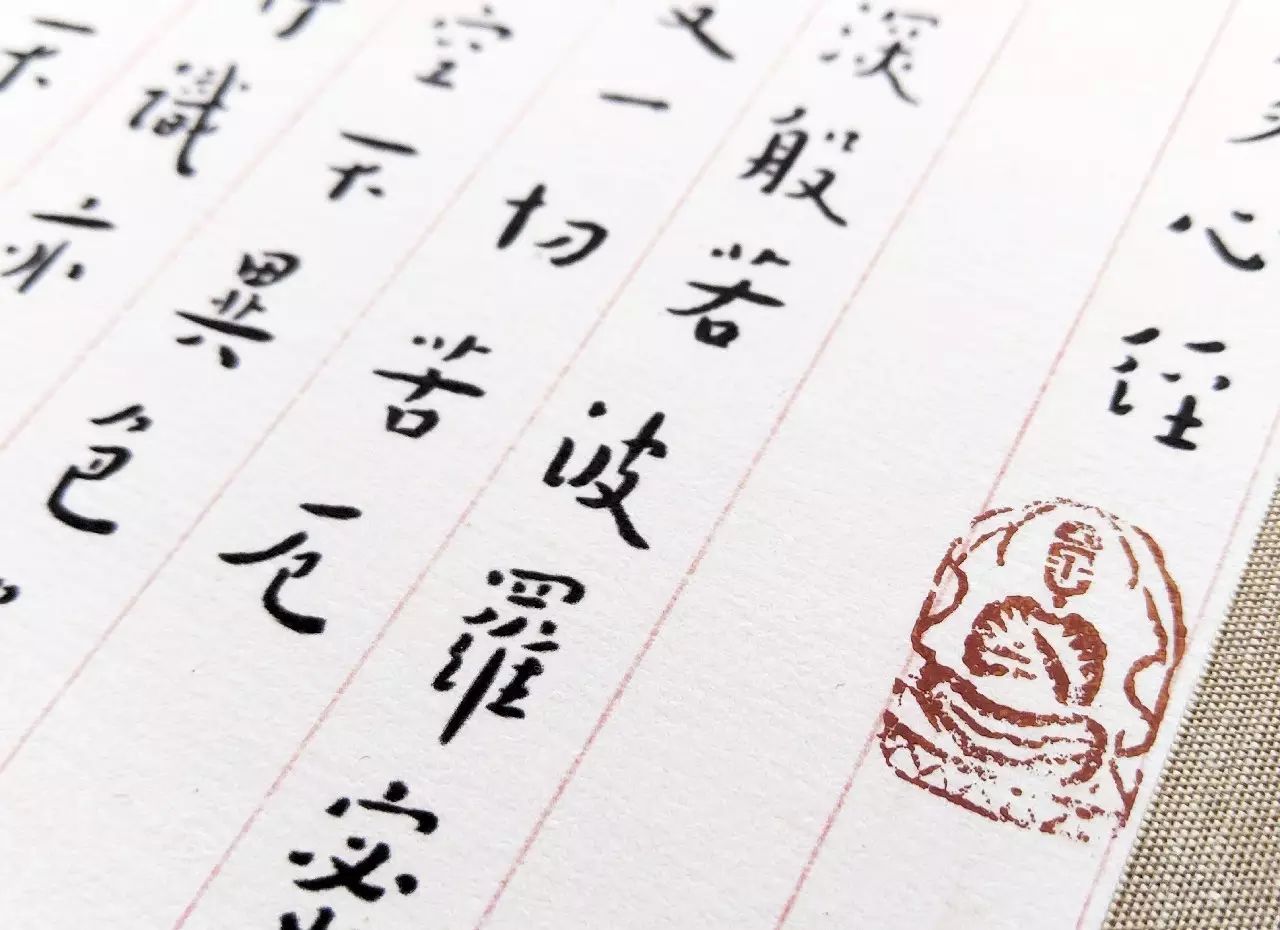 心經
深般若波羅蜜
一切苦厄
空不異色
識亦
不